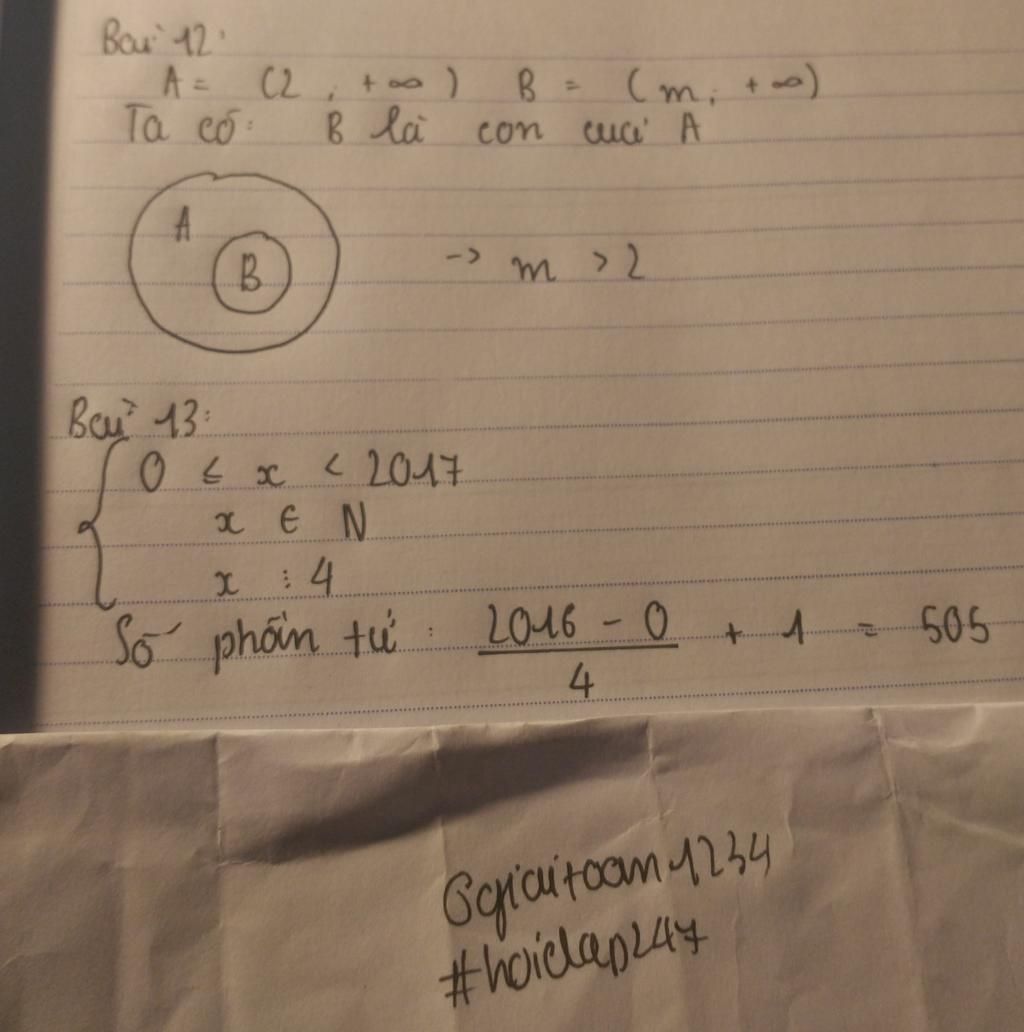 Bài 12:
A = (2 ; +∞) B = (m ; +∞)
Ta có: B là con của A
A
B
-> m > 2
Bài 13:
0 ≤ x < 2017
x ∈ N
x ⋮ 4
Số phần tử : (2016 - 0)/4 + 1 = 505
@giaitoan1234
#hoidap247